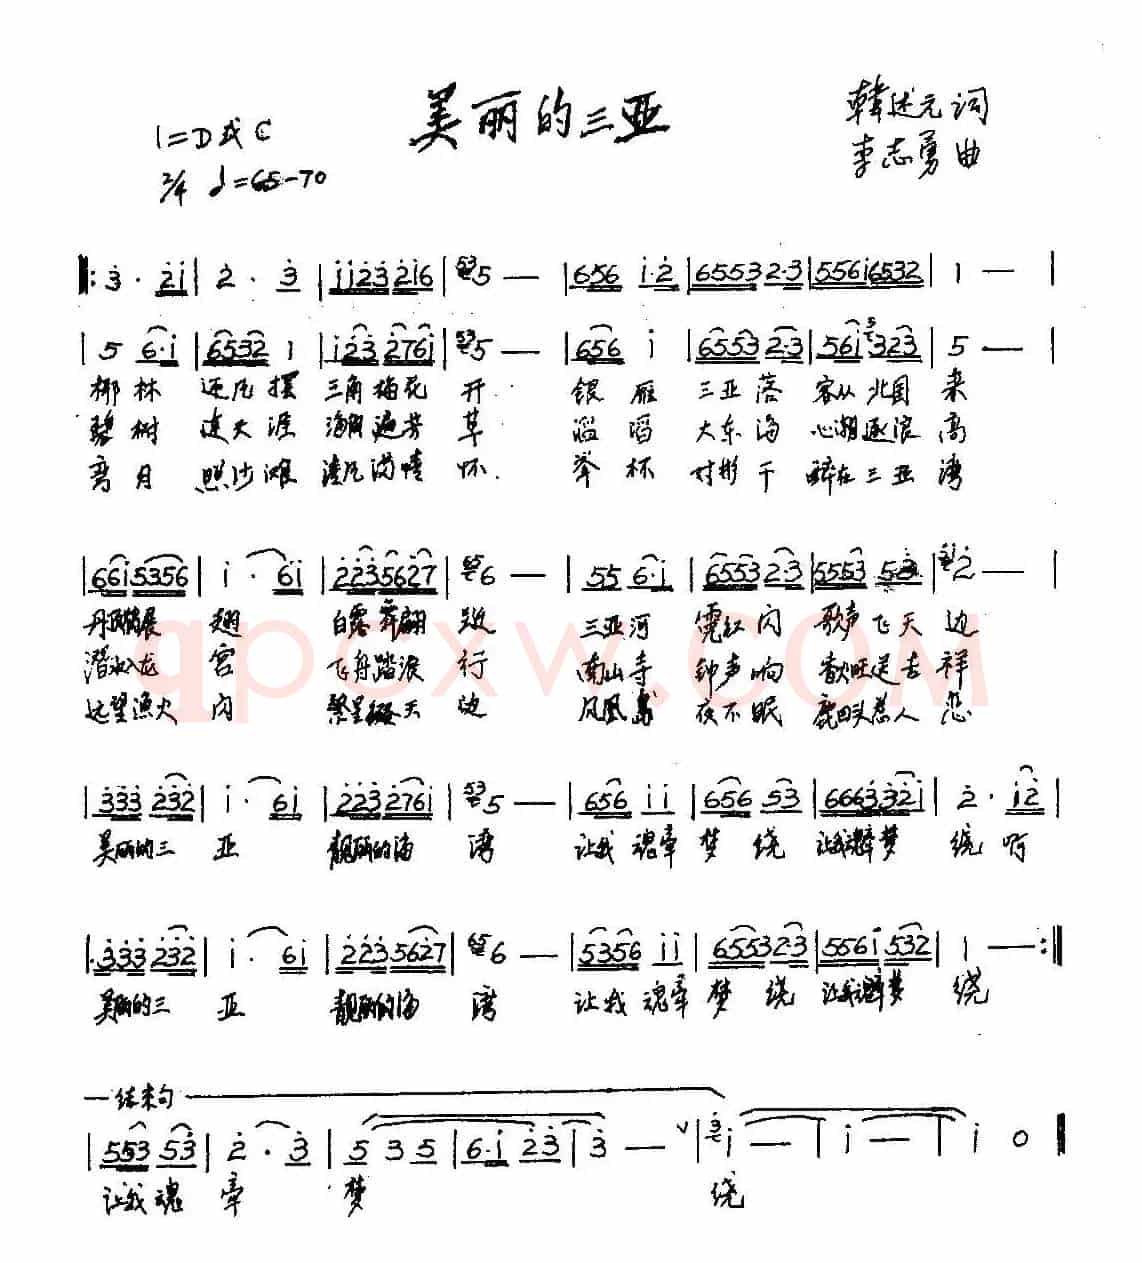 美丽的三亚
韩述元词
李志勇曲
1=D或C
2/4 ♩=65-70
‖: 3· 2i | 2· 3 | ii23 2i6 | 5 — | 656 i·2 | 6553 2·3 | 556i 6532 | 1 — |
| 5 6·i | 6532 1 | i23 276i | 5 — | 656 i | 6553 2·3 | 56i 323 | 5 — |
椰林 迎风摆 三角梅花 开 银雁 三亚落 客从北国 来
碧树 连天涯 海角遍芳 草 滔 大东海 心潮逐浪 高
弯月 照沙滩 清风满情 怀 举杯 对影干 醉在三亚 湾
| 66i 5356 | i· 6i | 223 5627 | 6 — | 55 6·i | 6553 2·3 | 5553 53 | 2 — |
展 翅 白鹭舞翩 三亚河 霓虹闪 歌声飞天 边
潜水入龙 宫 飞舟踏浪 行 南山寺 钟声响 香火旺送吉 祥
远望渔火 内 繁星缀天 边 凤凰岛 夜不眠 鹿回头惹人 恋
| 333 232 | i· 6i | 223 276i | 5 — | 656 ii | 656 53 | 6663 32i | 2· i2 |
美丽的三 亚 靓丽的海 湾 让我 魂牵 梦 绕 让我魂牵梦 绕 啊
| 333 232 | i· 6i | 223 5627 | 6 — | 5356 ii | 6553 2·3 | 556i 532 | 1 — :‖
美丽的三 亚 靓丽的海 湾 让我 魂牵 梦 绕 让我魂牵梦 绕
结束句
| 553 53 | 2· 3 | 5 35 | 6·i 23 | 3 — ∨ | i — | i — | i 0 ‖
让我 魂 牵 梦 绕
qpcxw.COM